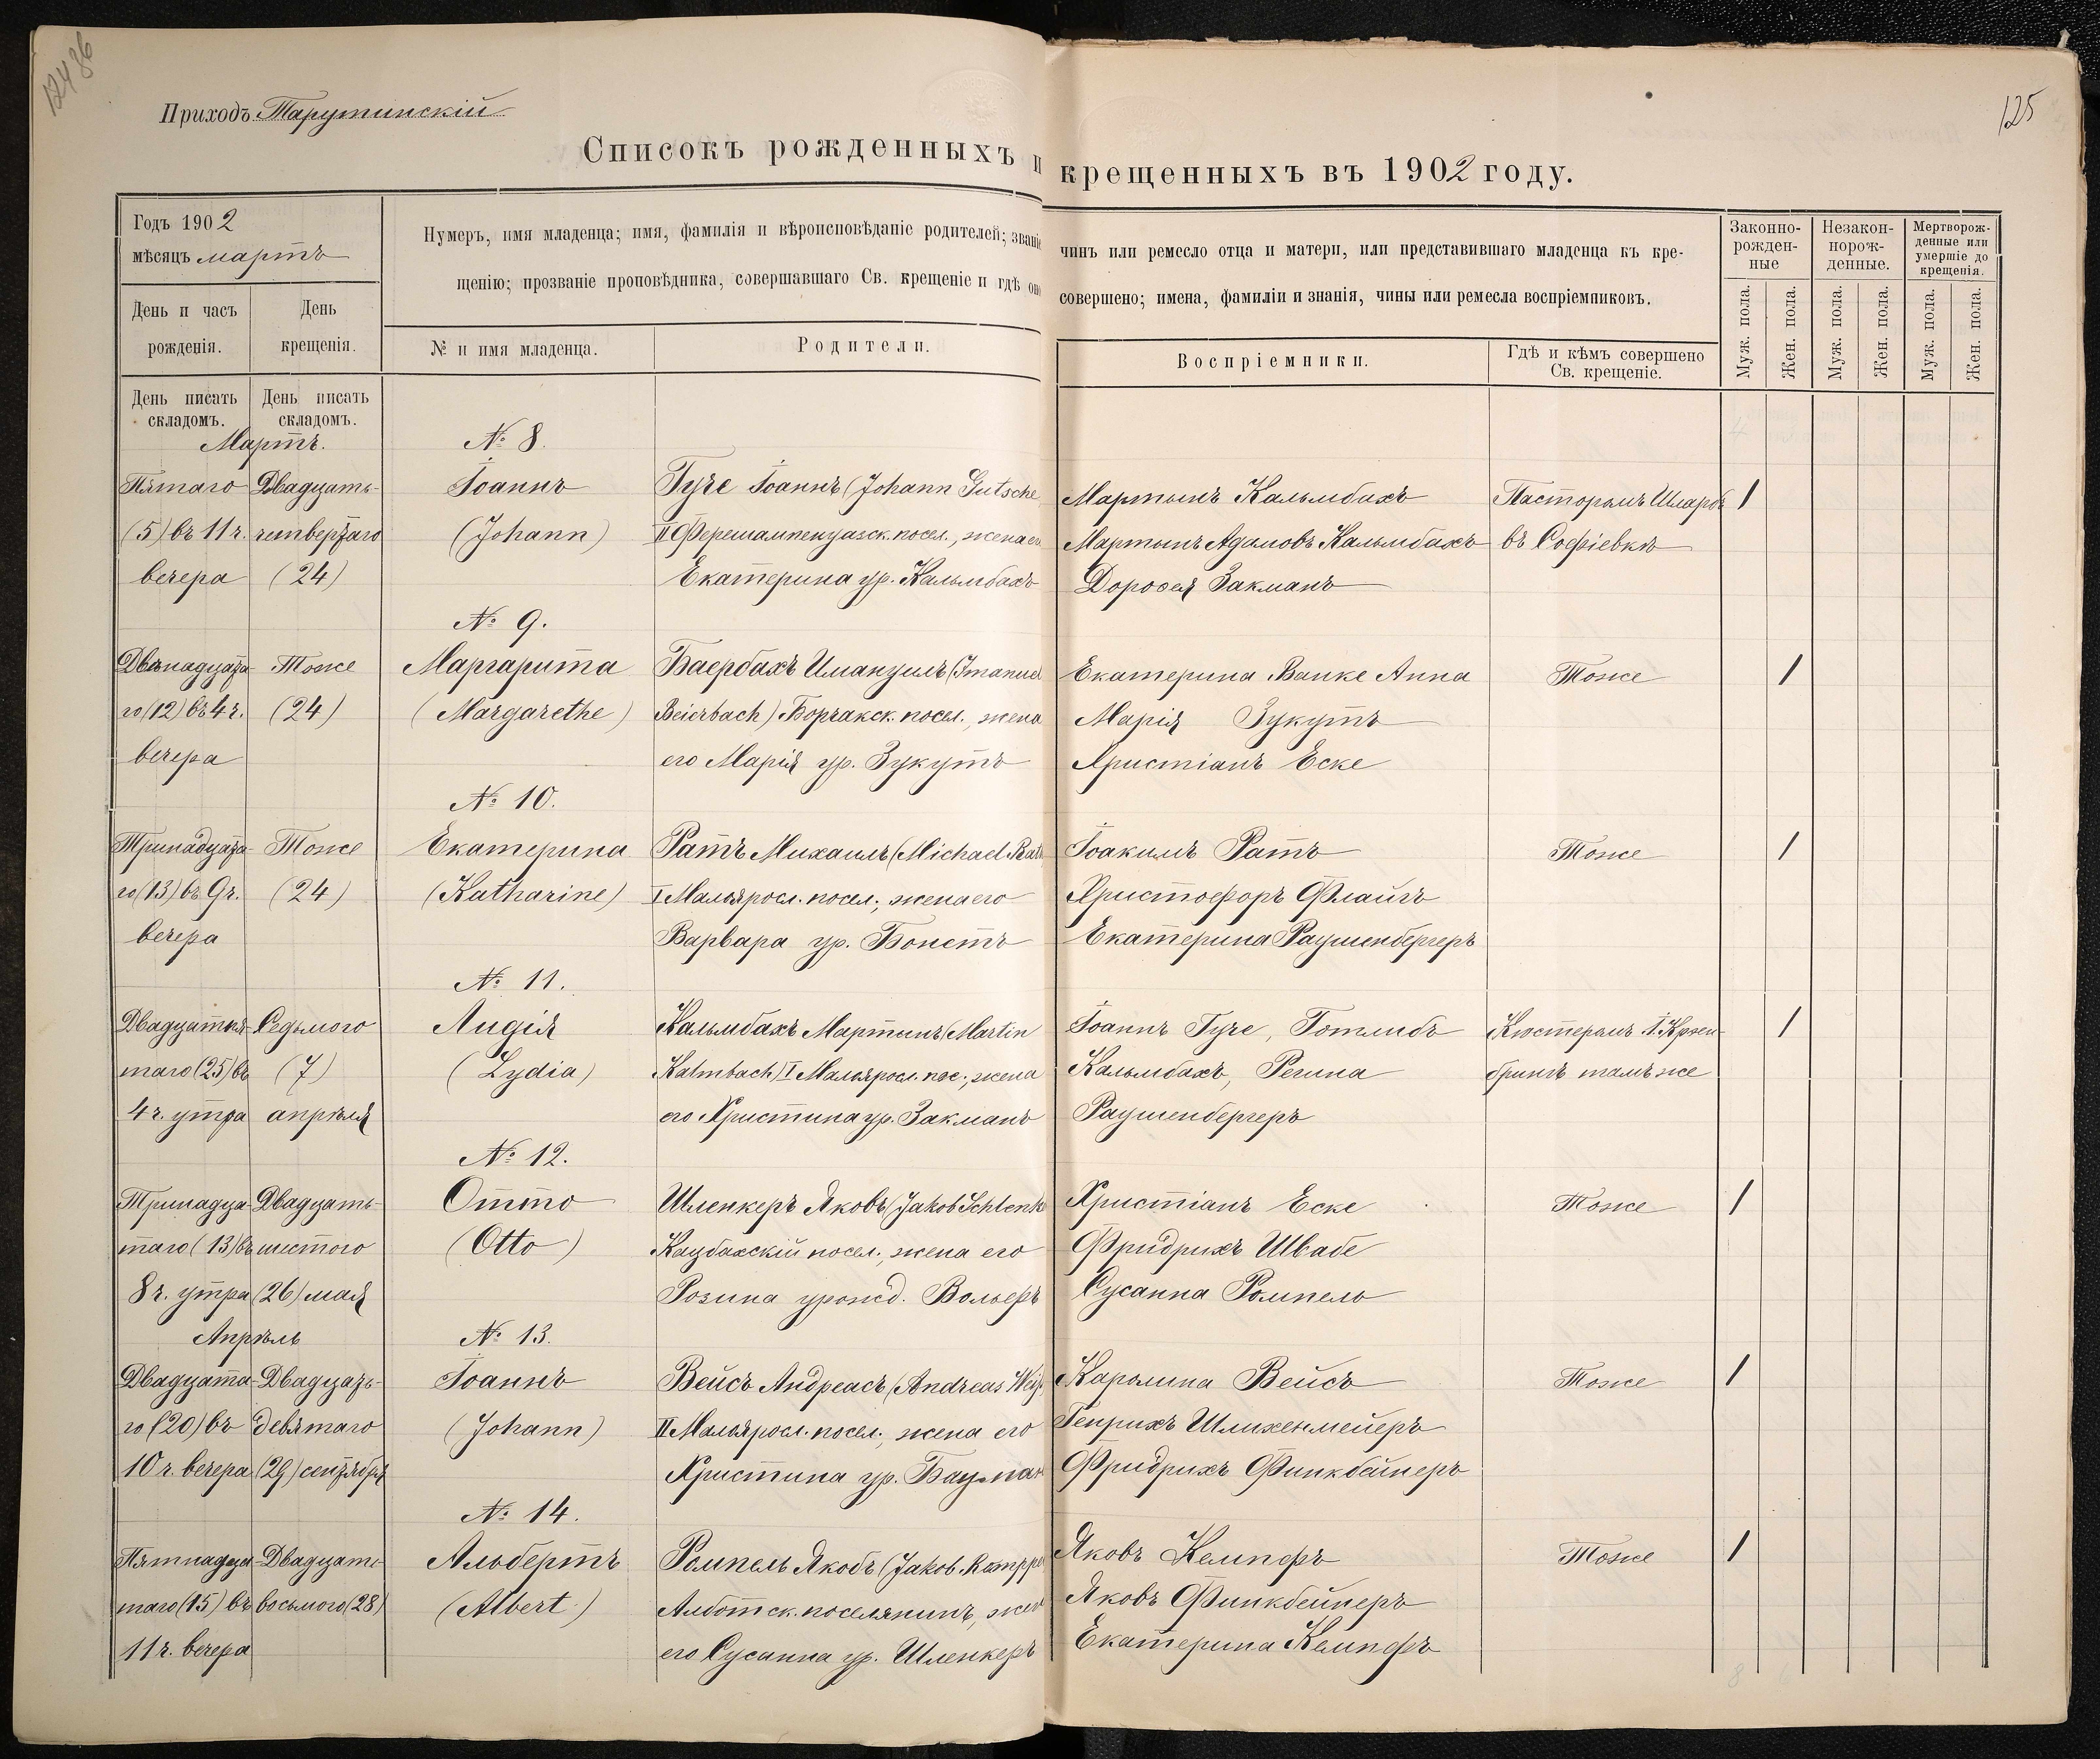 12486
125
Приходъ Тарутинскій
Списокъ рожденныхъ и крещенныхъ въ 1902 году.
Годъ 1902
мѣсяцъ мартъ
День и часъ
рожденія.
День
крещенія.
Нумеръ, имя младенца; имя, фамилія и вѣроисповѣданіе родителей; званіе
щенію; прозваніе проповѣдника, совершавшаго Св. крещеніе и гдѣ оно
№ и имя младенца.
Родители.
чинъ или ремесло отца и матери, или представившаго младенца къ кре-
совершено; имена, фамиліи и знанія, чины или ремесла воспріемниковъ.
Воспріемники.
Гдѣ и кѣмъ совершено
Св. крещеніе.
Законно-
рожден-
ные
Незакон-
норож-
денные.
Мертворож-
денные или
умершіе до
крещенія.
Муж. пола.
Жен. пола.
Муж. пола.
Жен. пола.
Муж. пола.
Жен. пола.
День писать
складомъ.
День писать
складомъ.
Мартъ.
№ 8.
Пятаго
(5) въ 11 ч.
вечера
Двадцать-
четвертаго
(24)
Іоаннъ
(Johann)
Гуче Іоаннъ (Johann Gutsche
II Ферешампенуазск. посел., жена его
Екатерина ур. Кальмбахъ
Мартынъ Кальмбахъ
Мартынъ Адамовъ Кальмбахъ
Доровея Закманъ
Пасторомъ Шларбъ
въ Софіевкѣ
1
№ 9.
Двѣнадцата-
го (12) въ 4 ч.
вечера
Тоже
(24)
Маргарита
(Margarethe)
Баербахъ Имануилъ (Imanuel
Beierbach) Борчакск. посел., жена
его Марія ур. Зукутъ
Екатерина Ванке Анна
Марія Зукутъ
Христіанъ Еске
Тоже
1
№ 10.
Тринадцата-
го (13) въ 9 ч.
вечера
Тоже
(24)
Екатерина
(Katharine)
Ратъ Михаилъ (Michael Rath
I Малояросл. посел., жена его
Варвара ур. Бонетъ
Іоакимъ Ратъ
Христофоръ Флайгъ
Екатерина Раушенбергеръ
Тоже
1
№ 11.
Двадцатпя-
таго (25) въ
4 ч. утра
Седьмого
(7)
апрѣля
Лидія
(Lydia)
Кальмбахъ Мартинъ (Martin
Kalmbach) I Малояросл. пос., жена
его Христина ур. Закманъ
Іоаннъ Гуче, Готлибъ
Кальмбахъ, Регина
Раушенбергеръ
Кюстеромъ
брингъ тамъ же
1
№ 12.
Тринадца-
таго (13) въ
8 ч. утра
Двадцать-
шестого
(26) мая
Отто
(Otto)
Шленкеръ Яковъ (Jakob Schlenk
Кацбахскій посел., жена его
Розина урожд. Вольеръ
Христіанъ Еске
Фридрихъ Швабе
Сусанна Ромпель
Тоже
1
Апрѣль
№ 13.
Двадцата-
го (20) въ
10 ч. вечера
Двадцать-
девятаго
(29) сентября
Іоаннъ
(Johann)
Вейсъ Андреасъ (Andreas Weiß
II Малояросл. посел., жена его
Христина ур. Бауман
Каролина Вейсъ
Генрихъ Шлихенмейеръ
Фридрихъ Финкбейнеръ
Тоже
1
№ 14.
Пятнадца-
таго (15) въ
11 ч. вечера
Двадцать-
восьмого (28)
Альбертъ
(Albert)
Ромпель Якобъ (Jakob Romppe
Алботск. поселянинъ, жена
его Сусанна ур. Шленкеръ
Яковъ Кемпфъ
Яковъ Финкбейнеръ
Екатерина Кемпфъ
Тоже
1
8 6